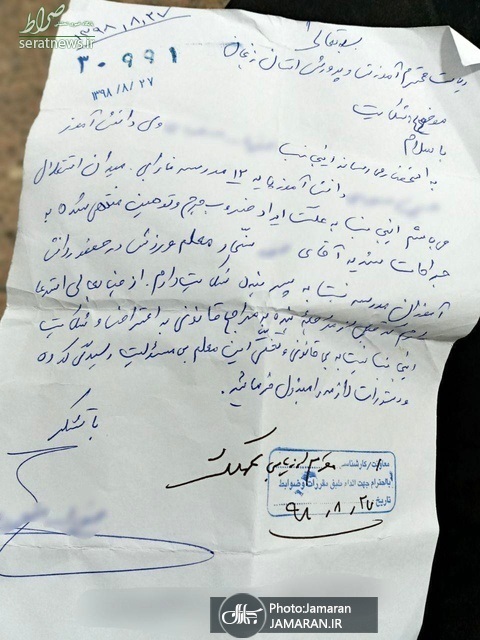 صراط
seratnews.ir
۱۳۹۸،۸،۲۷
۳۰۹۹۱
۱۳۹۸/۸/۲۷
بسمه تعالی
ریاست محترم آموزش و پرورش استان زنجان
موضوع: شکایت
با سلام
به استحضار می رساند اینجانب ولی دانش آموز
دانش آموز پایه ۱۲ مدرسه فارابی. میدان استقلال
می باشم اینجانب به علت ایراد ضرب و جرح و توهین منتهی شده به
جراحات شدید آقای معلم ورزش در حضور دانش
آموزان مدرسه نسبت به پسر بنده شکایت دارم. از جنابعالی استدعا
دارم به مراجع قانونی به اعتراض و شکایت
اینجانب به بی قانونی این معلم بی مسئولیت رسیدگی کرده
و دستورات لازمه را مبذول فرمائید.
با تشکر
معاونت/کارشناس
بااحترام جهت اقدام طبق مقررات و ضوابط
تاریخ ۹۸،۸،۲۷
جماران
Photo:Jamaran
JAMARAN.IR